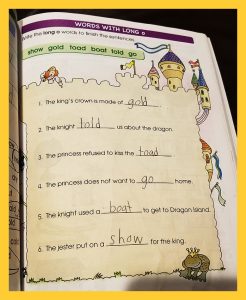 WORDS WITH LONG o
the long o words to finish the sentences.
show gold toad boat told go
1. The king's crown is made of gold.
2. The knight told us about the dragon.
3. The princess refused to kiss the toad.
4. The princess does not want to go home.
5. The knight used a boat to get to Dragon Island.
6. The jester put on a show for the king.